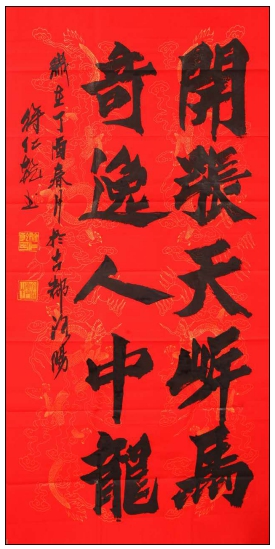 開張天岸馬
奇逸人中龍
歲在丁酉春月於古都洛陽
徐仁乾書